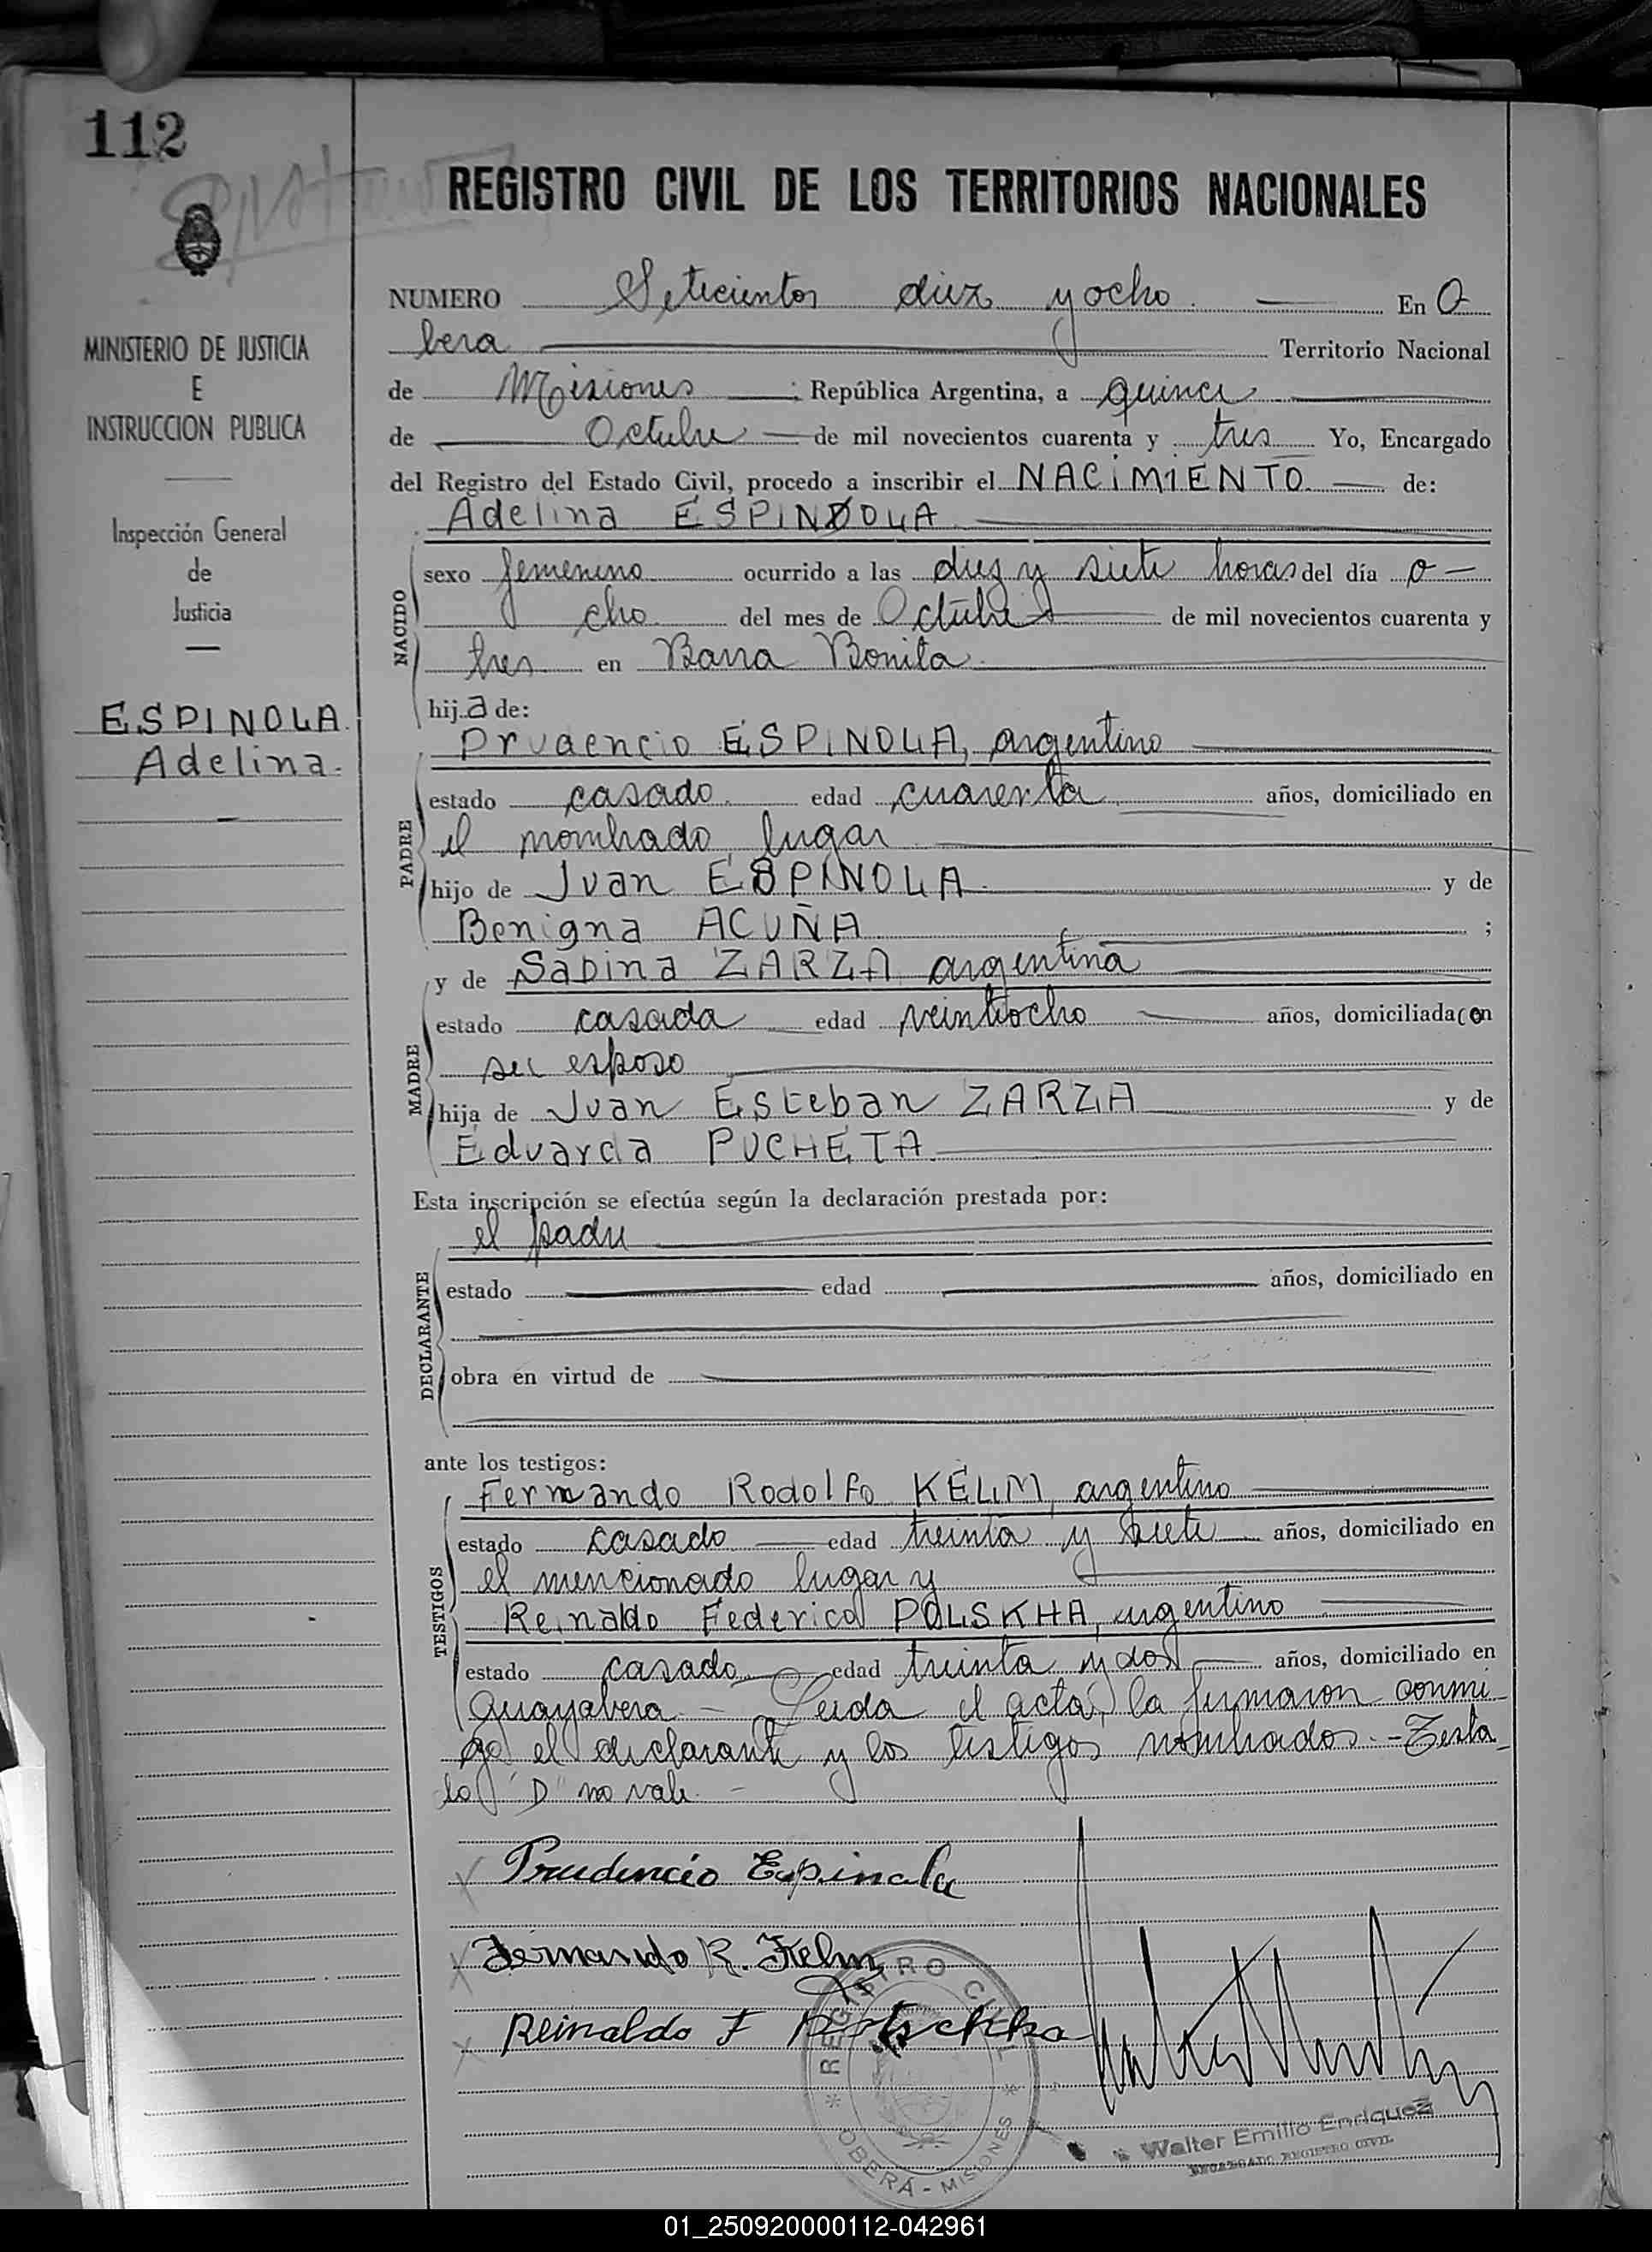 112
REGISTRO CIVIL DE LOS TERRITORIOS NACIONALES
MINISTERIO DE JUSTICIA
E
INSTRUCCION PUBLICA
Inspección General
de
Justicia
ESPINOLA
Adelina.
NUMERO Setecientos diez y ocho En O
bera Territorio Nacional
de Misiones ; República Argentina, a quince
de Octubre de mil novecientos cuarenta y tres Yo, Encargado
del Registro del Estado Civil, procedo a inscribir el NACIMIENTO de:
Adelina ESPINDOLA
NACIDO
sexo femenino ocurrido a las diez y siete horas del día o-
cho del mes de Octubre de mil novecientos cuarenta y
tres en Barra Bonita
hija de:
PADRE
Prudencio ESPINOLA, argentino
estado casado edad cuarenta años, domiciliado en
el nombrado lugar
hijo de Juan ESPINOLA y de
Benigna ACUÑA ;
MADRE
y de Sabina ZARZA argentina
estado casada edad veintiocho años, domiciliada con
su esposo
hija de Juan Esteban ZARZA y de
Eduarda PUCHETA
Esta inscripción se efectúa según la declaración prestada por:
DECLARANTE
el padre
estado edad años, domiciliado en
obra en virtud de
ante los testigos:
TESTIGOS
Fernando Rodolfo KELM, argentino
estado casado edad treinta y siete años, domiciliado en
el mencionado lugar y
Reinaldo Federico POLSKHA, argentino
estado casado edad treinta y dos años, domiciliado en
Guayabera - Leida el acta, la firmaron conmi-
go el declarante y los testigos nombrados. - Testa-
do "D" no vale -
Prudencio Espinola
Fernando R. Kelm
Reinaldo F
REGISTRO CIVIL
OBERÁ - MISIONES
Walter Emilio Enriquez
ENCARGADO REGISTRO CIVIL
01_250920000112-042961